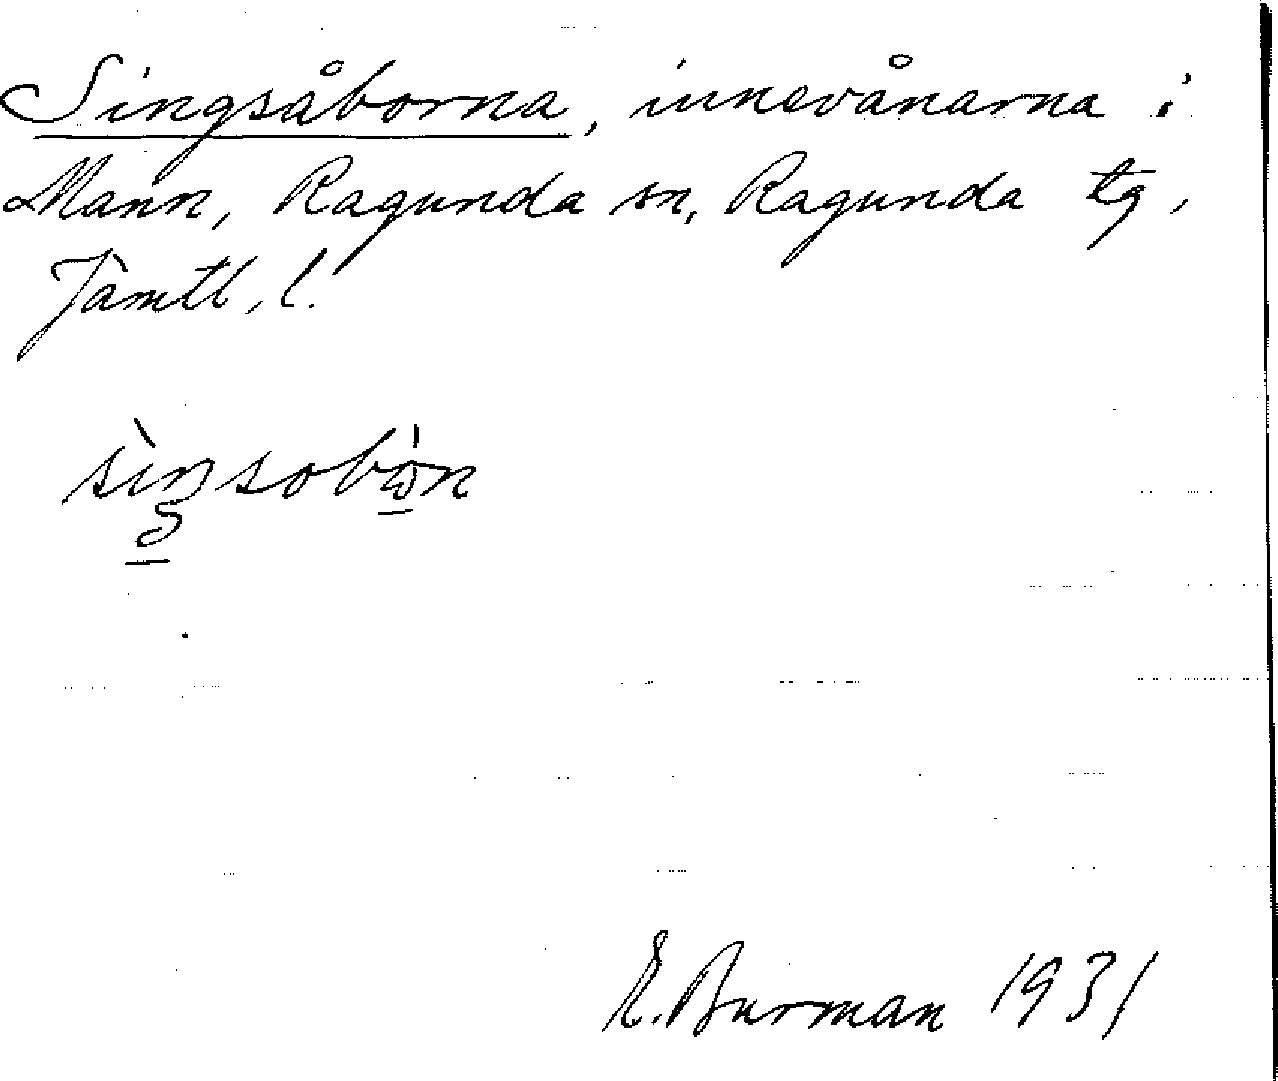 Singsåborna, innevånarna i
Mann, Ragunda sn, Ragunda tg,
Jämtl. l.
E. Burman 1931